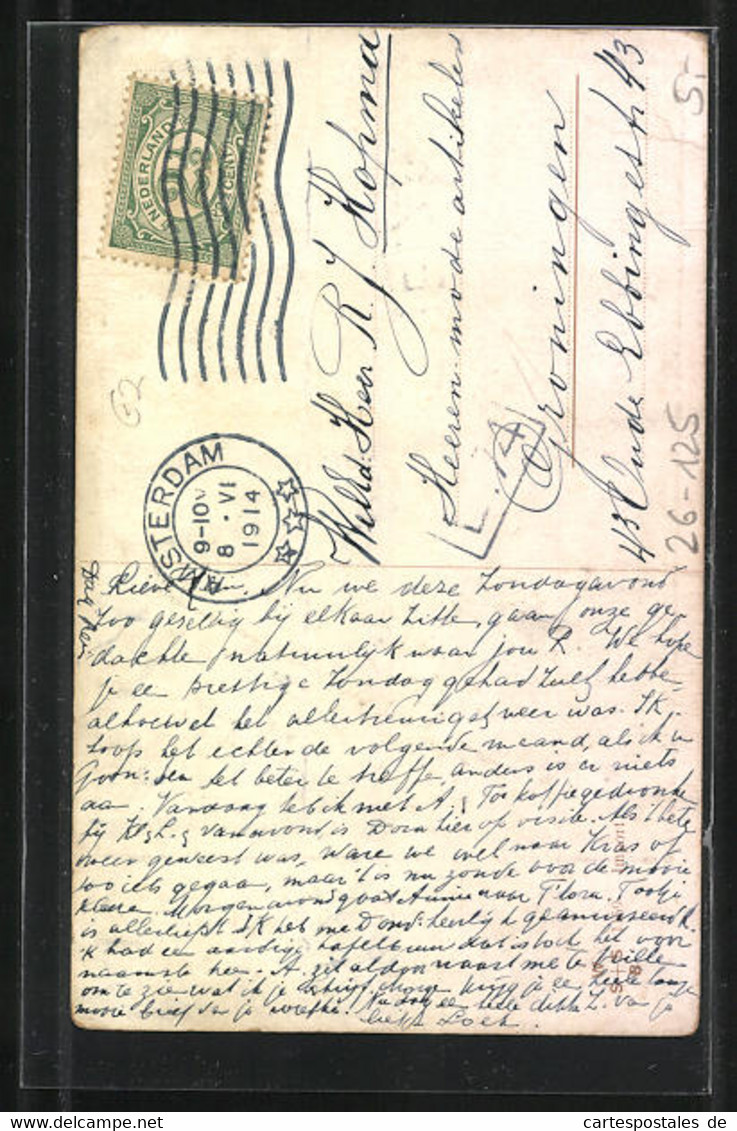 NEDERLAND
2½ CENT
AMSTERDAM
9-10V
8.VI
1914
Heer R J Kopma
Heeren mode artikelen
Groningen
43 Oude Ebbingestr 43
5,-
26-125
62
Lieve Nu we deze Zondagavond
zoo gezellig bij elkaar zitte, gaan onze ge-
dachte natuurlijk naar jou R. We hope
je ee prettige Zondag gehad zult hebbe
alhoewel het weer was. Ik
hoop het echter de volgende maand, als ik in
het beter te treffe, anders is er niets
aa. Vandaag heb ik met A. koffiegedronke
bij & vanavond is Dora hier op visite. Als 't bete
weer geweest was, ware we wel naar Kras of
zoo iets gegaa, maar 't is nu zonde voor de mooie
kleere. Morgenavond gaat Annie naar Flora.
is allerliefst. Ik heb me
'k had ee aardige dat is toch het voor
naamste hee. A. zit aldoor naast me te
om te zie wat ik je schrijf. Morge krijg je ee heele lange
mooie brief van je Nu dag ee dikke Z. van je
liefh Loek.
cartespostales de